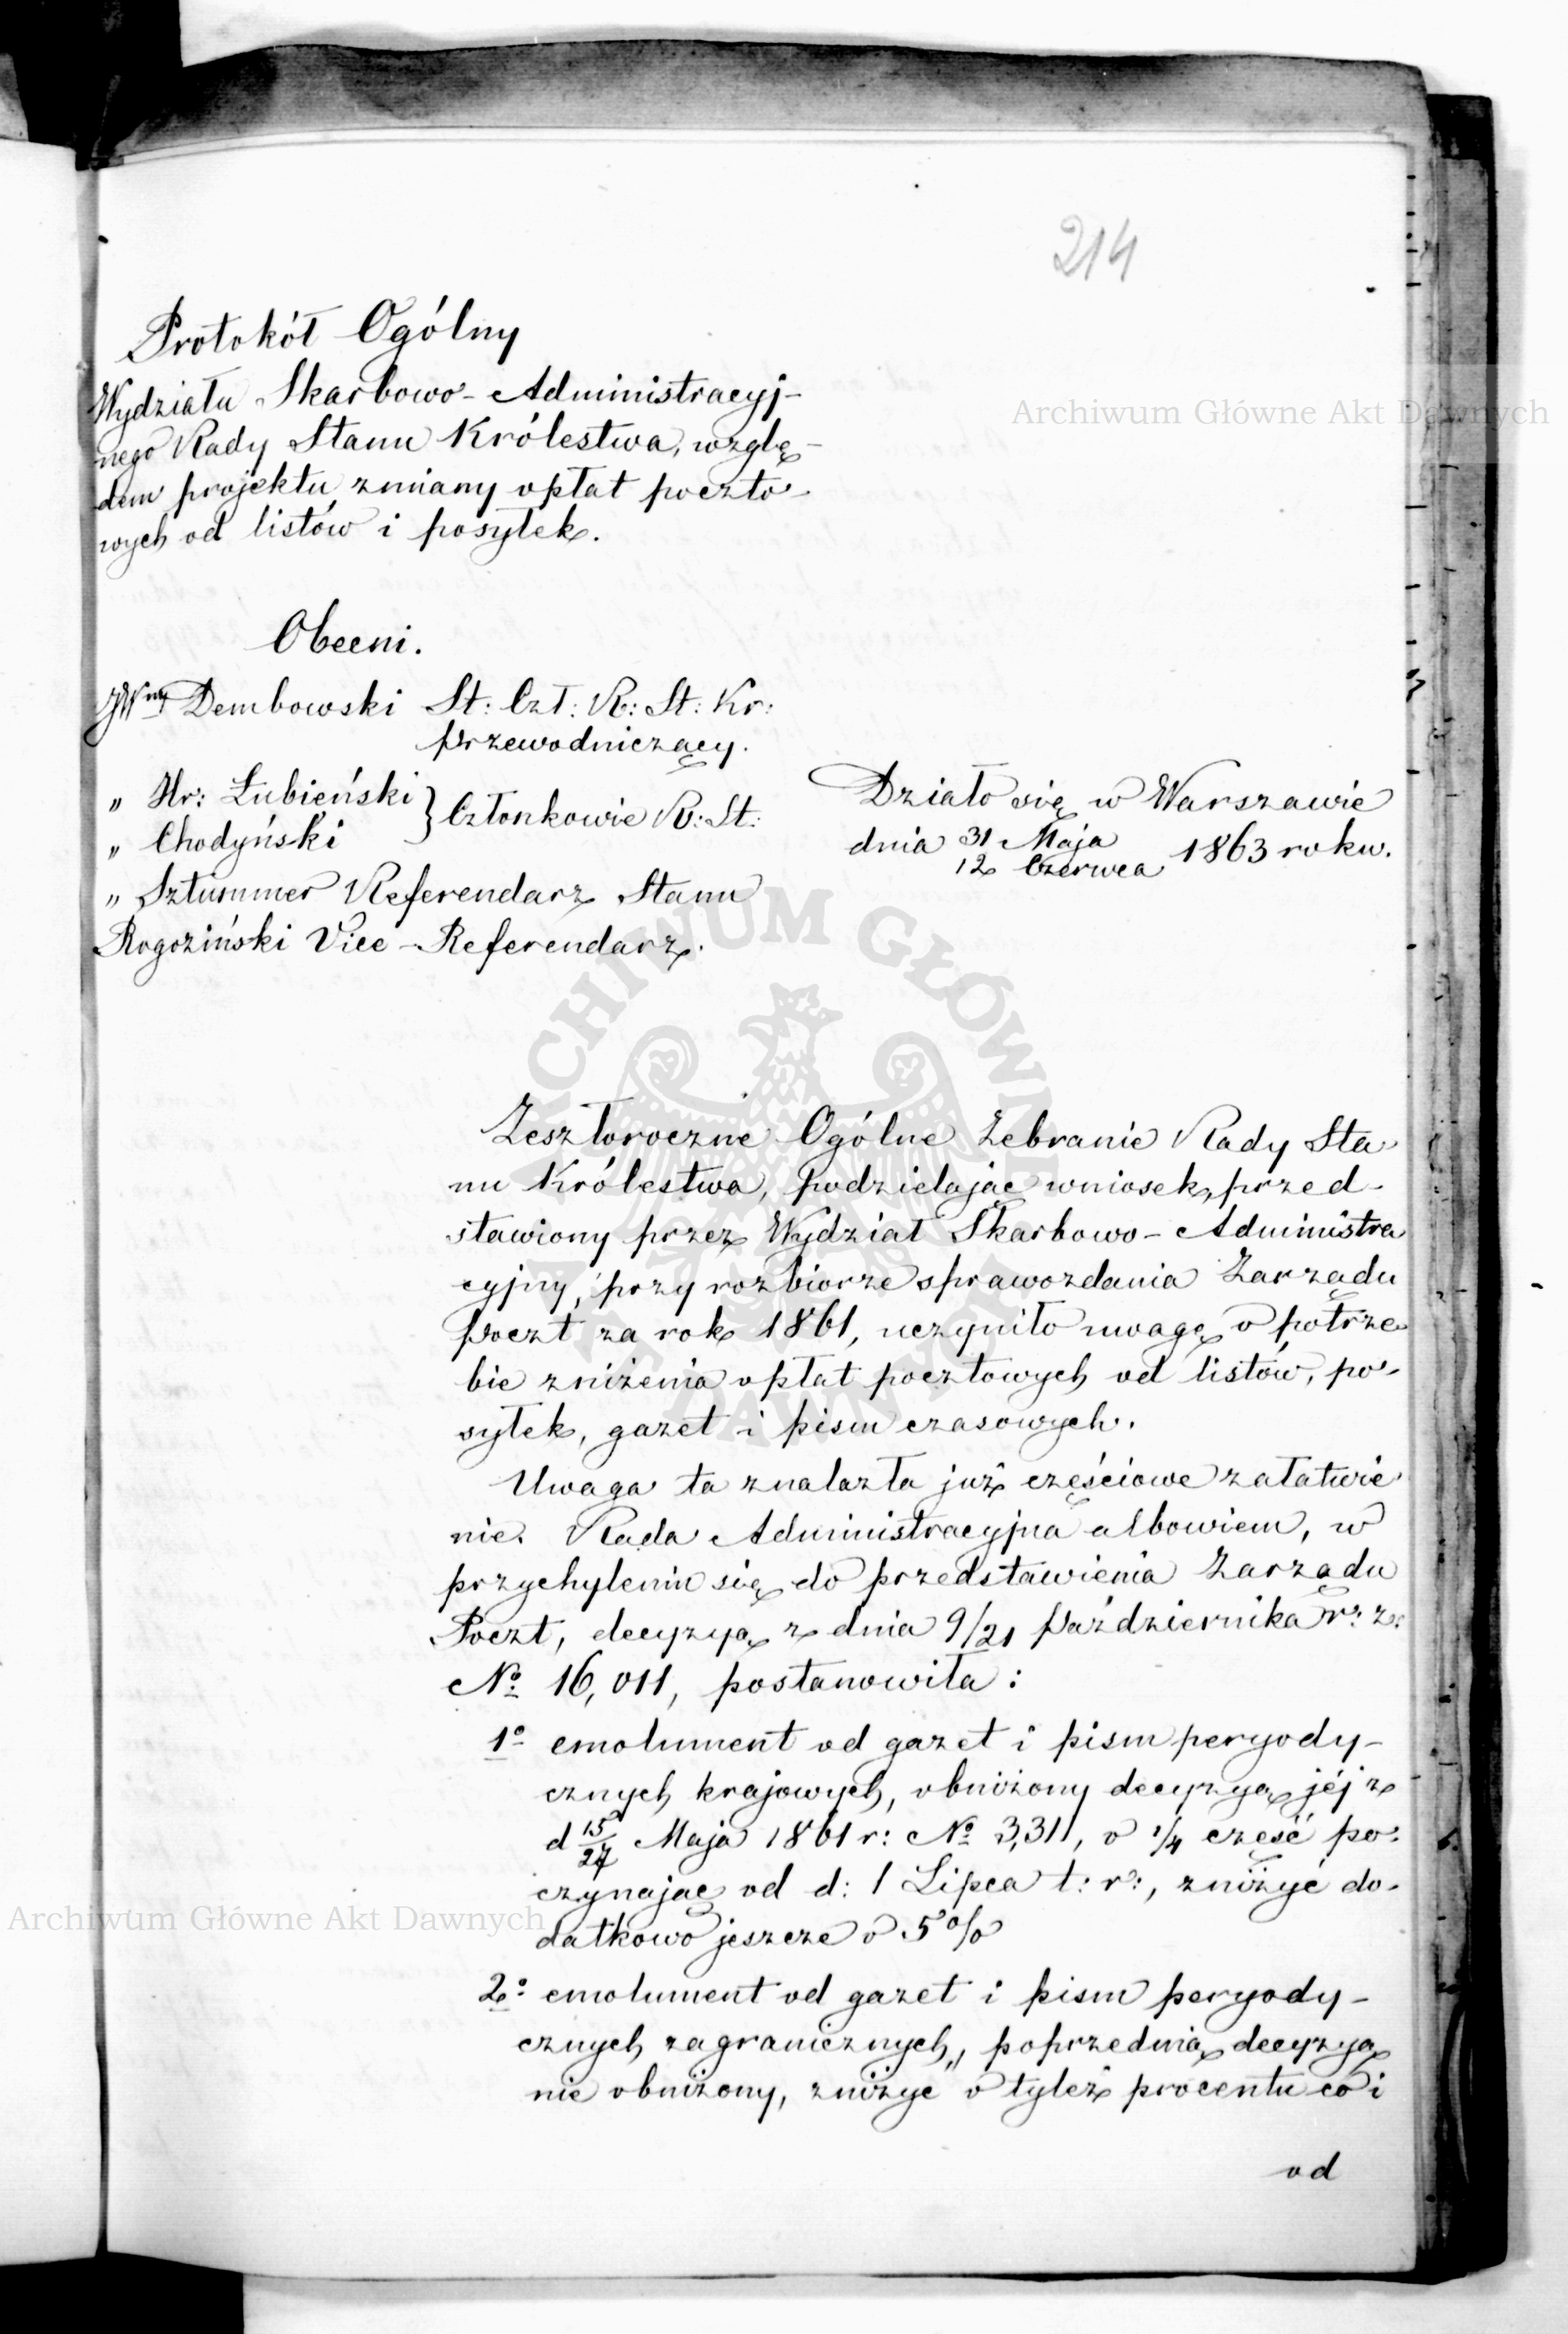 214
Protokół Ogólny
Wydziału Skarbowo-Administracyj-
nego Rady Stanu Królestwa, wzglę-
dem projektu zmiany opłat poczto-
wych od listów i posyłek.
Obecni.
JWny Dembowski St: Czł: R: St: Kr:
Przewodniczący.
„ Hr: Łubieński } Członkowie R: St:
„ Chodyński
„ Sztummer Referendarz Stanu
Rogoziński Vice-Referendarz.
Działo się w Warszawie
dnia 31 Maja / 12 Czerwca 1863 roku.
Zeszłoroczne Ogólne Zebranie Rady Sta-
nu Królestwa, podzielając wniosek, przed-
stawiony przez Wydział Skarbowo-Administra
cyjny, przy rozbiorze sprawozdania Zarządu
Poczt za rok 1861, uczyniło uwagę o potrze-
bie zniżenia opłat pocztowych od listów, po-
syłek, gazet i pism czasowych.
Uwaga ta znalazła już częściowe załatwie
nie. Rada Administracyjna albowiem, w
przychyleniu się do przedstawienia Zarządu
Poczt, decyzyą z dnia 9/21 Października r: z:
No 16,011, postanowiła:
1o emolument od gazet i pism peryody-
cznych krajowych, obniżony decyzyą jéj z
d 15/27 Maja 1861 r: No 3,311, o 1/4 część po-
czynając od d: 1 Lipca t: r:, zniżyć do-
datkowo jeszcze o 5%
2o emolument od gazet i pism peryody-
cznych zagranicznych, poprzednią decyzyą
nie obniżony, zniżyć o tyleż procentu co i
od
Archiwum Główne Akt Dawnych
Archiwum Główne Akt Dawnych
ARCHIWUM GŁÓWNE AKT DAWNYCH